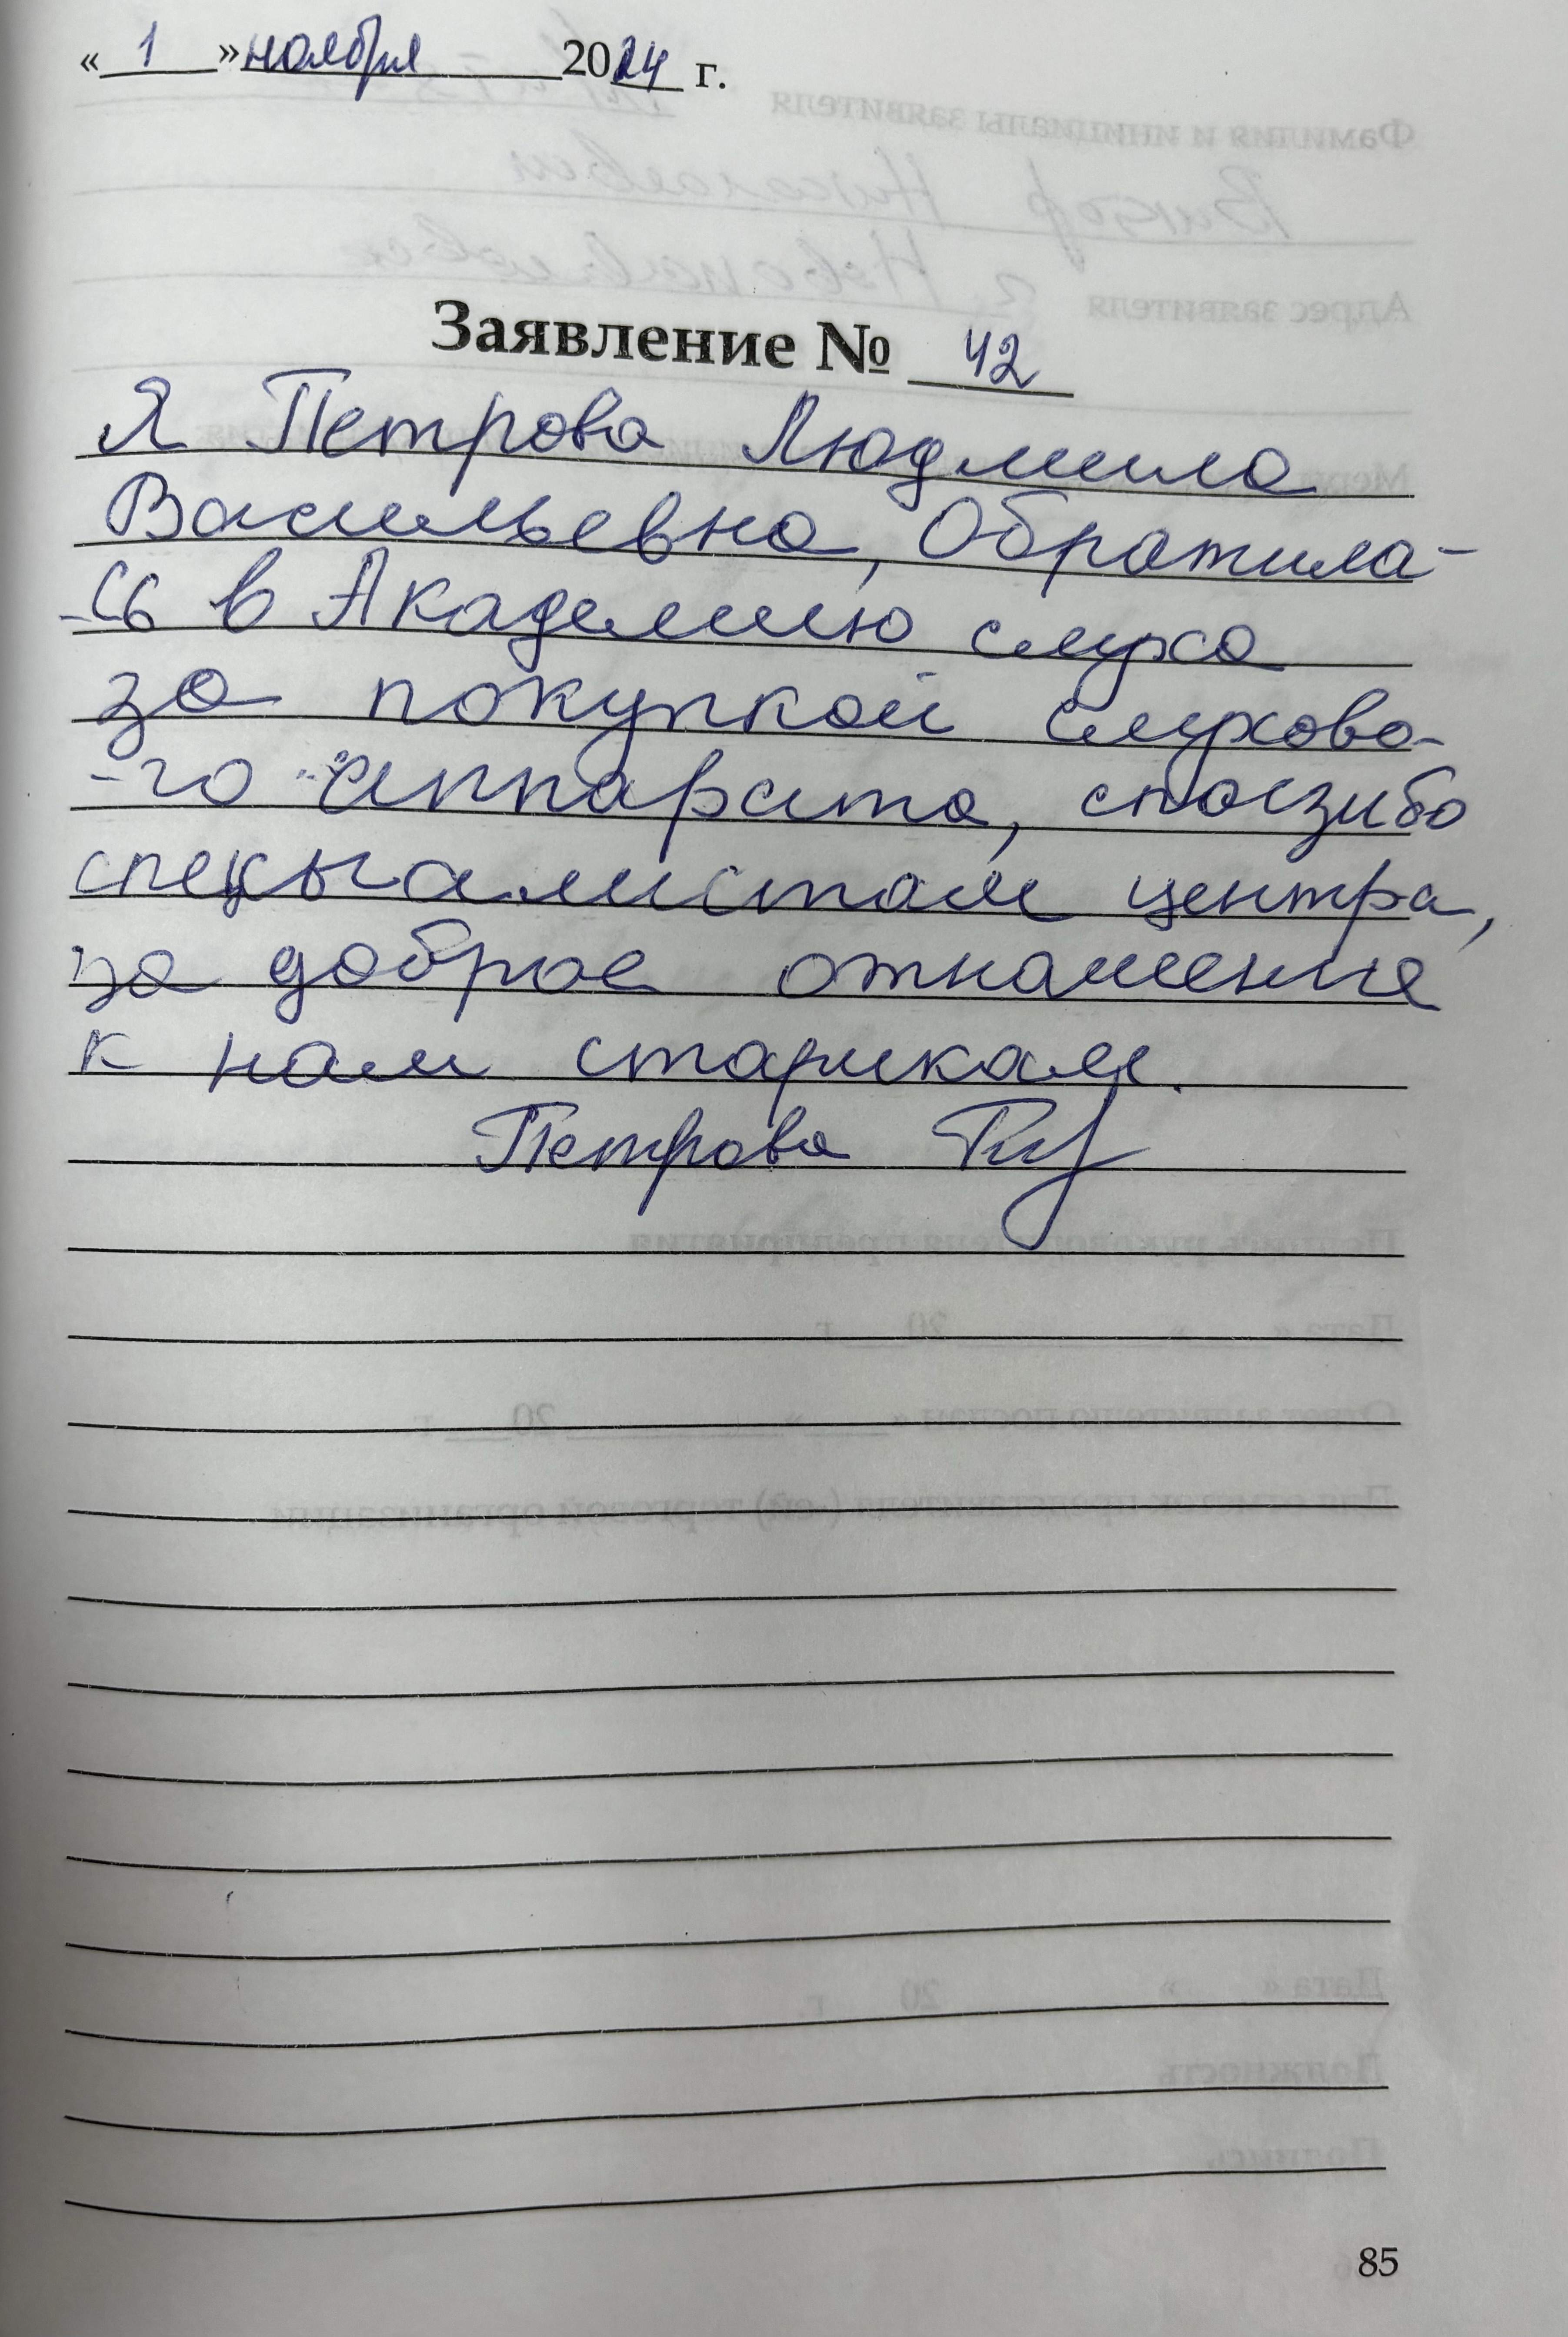 « 1 » ноября 2024 г.
Заявление № 42
Я Петрова Людмила
Васильевна, Обратила-
-сь в Академию слуха
за покупкой слухово-
-го аппарата, спосзибо
спецыалистам центра,
за доброе отнашение
к нам старикам.
Петрова
85